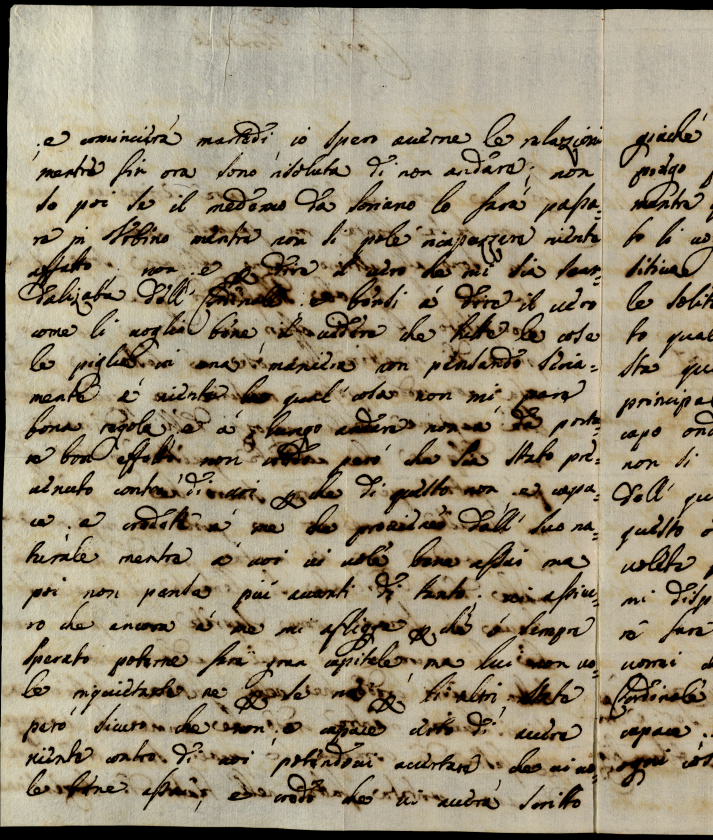 e comincierà martedi io spero auerne le relazzioni
mentre sin ora sono risoluta di non andare; non
so poi se il medemo da soriano lo farà passa-
re in Vrbino mentre non si pole ricapezzare niente
affatto non e p dire il uero che mi sia scan-
dalizata dell' Cordinale e bensi à dire il uero
come li uoglio bene il uedere che tute le cose
le piglia in una maniera non pensando seria-
mente à niente la qual cosa non mi pare
bona regola e à lungo andare non à da porta-
re boni effetti non credo però che sia stato pre-
uenuto contro di uoi p che di questo non e capa-
ce e credete à me che procede dall' suo na-
turale mentre à uoi ui uole bene assai ma
poi non pensa più auanti di tanto. ui assicu-
ro che ancora à me mi afligge p che ò sempre
sperato poterne fare gran capitale ma lui non uo-
le inquietarse ne p se ne p li altri state
però sicuro che non e capace certo di auere
niente contro di uoi potendoui acertare che ui uo-
le bene assai, e credo che ui auerà scritto
giaché
porgo
mentre
to li uo
sitiua
le solite
to qual
sta qu
principa
capo ond
non si
dell' qu
questo
uolete
mi disp
re sarà
uorrei
Cordinale
capace
ogni cos